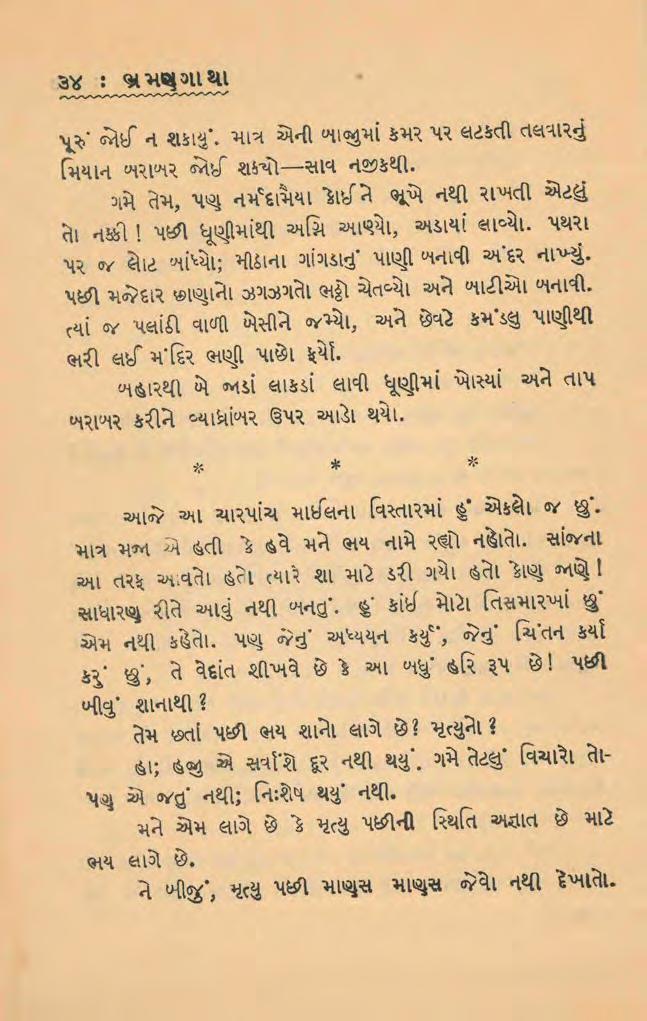 ૩૪ : ભ્રમણગાથા
પૂરું જોઈ ન શકાયું. માત્ર એની બાજુમાં કમર પર લટકતી તલવારનું
મિયાન બરાબર જોઈ શક્યો—સાવ નજીકથી.
ગમે તેમ, પણ નર્મદામૈયા કોઈને ભૂખે નથી રાખતી એટલું
તો નક્કી ! પછી ધૂણીમાંથી અગ્નિ આણ્યો, અડાયાં લાવ્યો. પથરા
પર જ લોટ બાંધ્યો; મીઠાના ગાંગડાનું પાણી બનાવી અંદર નાખ્યું.
પછી મજેદાર છાણાનો ઝગઝગતો ભઠ્ઠો ચેતવ્યો અને બાટીઓ બનાવી.
ત્યાં જ પલાંઠી વાળી બેસીને જમ્યો, અને છેવટે કમંડલુ પાણીથી
ભરી લઈ મંદિર ભણી પાછો ફર્યો.
બહારથી બે જાડાં લાકડાં લાવી ધૂણીમાં ખોસ્યાં અને તાપ
બરાબર કરીને વ્યાધ્રાંબર ઉપર આડો થયો.
* * *
આજે આ ચારપાંચ માઈલના વિસ્તારમાં હું એકલો જ છું.
માત્ર મજા એ હતી કે હવે મને ભય નામે રહ્યો નહોતો. સાંજના
આ તરફ આવતો હતો ત્યારે શા માટે ડરી ગયો હતો કોણ જાણે !
સાધારણ રીતે આવું નથી બનતું. હું કાંઈ મોટો તિસમારખાં છું
એમ નથી કહેતો. પણ જેનું અધ્યયન કર્યું, જેનું ચિંતન કર્યા
કરું છું, તે વેદાંત શીખવે છે કે આ બધું હરિ રૂપ છે! પછી
બીવું શાનાથી ?
તેમ છતાં પછી ભય શાનો લાગે છે? મૃત્યુનો ?
હા; હજી એ સર્વાંશે દૂર નથી થયું. ગમે તેટલું વિચારો તો-
પણ એ જતું નથી; નિઃશેષ થયું નથી.
મને એમ લાગે છે કે મૃત્યુ પછીની સ્થિતિ અજ્ઞાત છે માટે
ભય લાગે છે.
ને બીજું, મૃત્યુ પછી માણસ માણસ જેવો નથી દેખાતો.